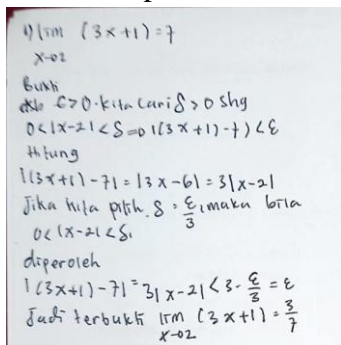 1) lim (3x+1)=7
x→2
Bukti
ε>0. kita cari δ>0 shg
0<|x-2|<δ ⇒ |(3x+1)-7|<ε
Hitung
|(3x+1)-7|=|3x-6|=3|x-2|
Jika kita pilih δ=ε/3, maka bila
0<|x-2|<δ,
diperoleh
|(3x+1)-7|=3|x-2|<3·ε/3=ε
Jadi terbukti lim (3x+1)=3/7
x→2